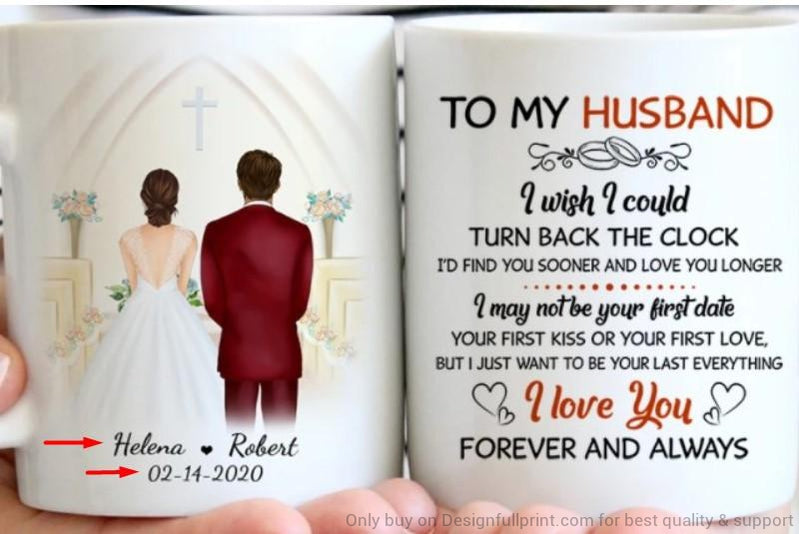 Helena ♥ Robert
02-14-2020
TO MY HUSBAND
I wish I could
TURN BACK THE CLOCK
I'D FIND YOU SOONER AND LOVE YOU LONGER
I may not be your first date
YOUR FIRST KISS OR YOUR FIRST LOVE,
BUT I JUST WANT TO BE YOUR LAST EVERYTHING
I love You
FOREVER AND ALWAYS
Only buy on Designfullprint.com for best quality & support